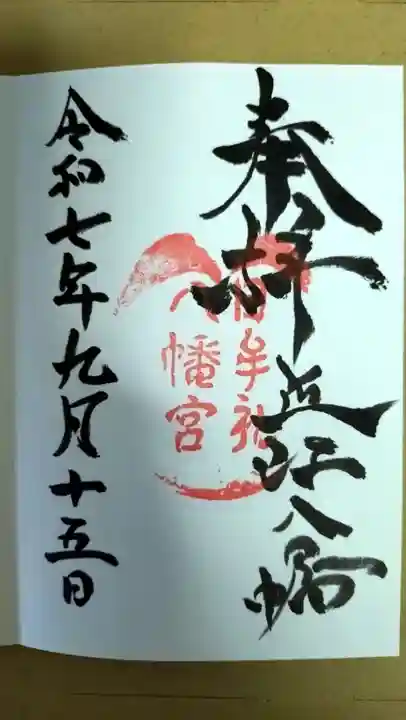 奉拝
近江八幡
日牟禮
八幡宮
令和七年九月十五日